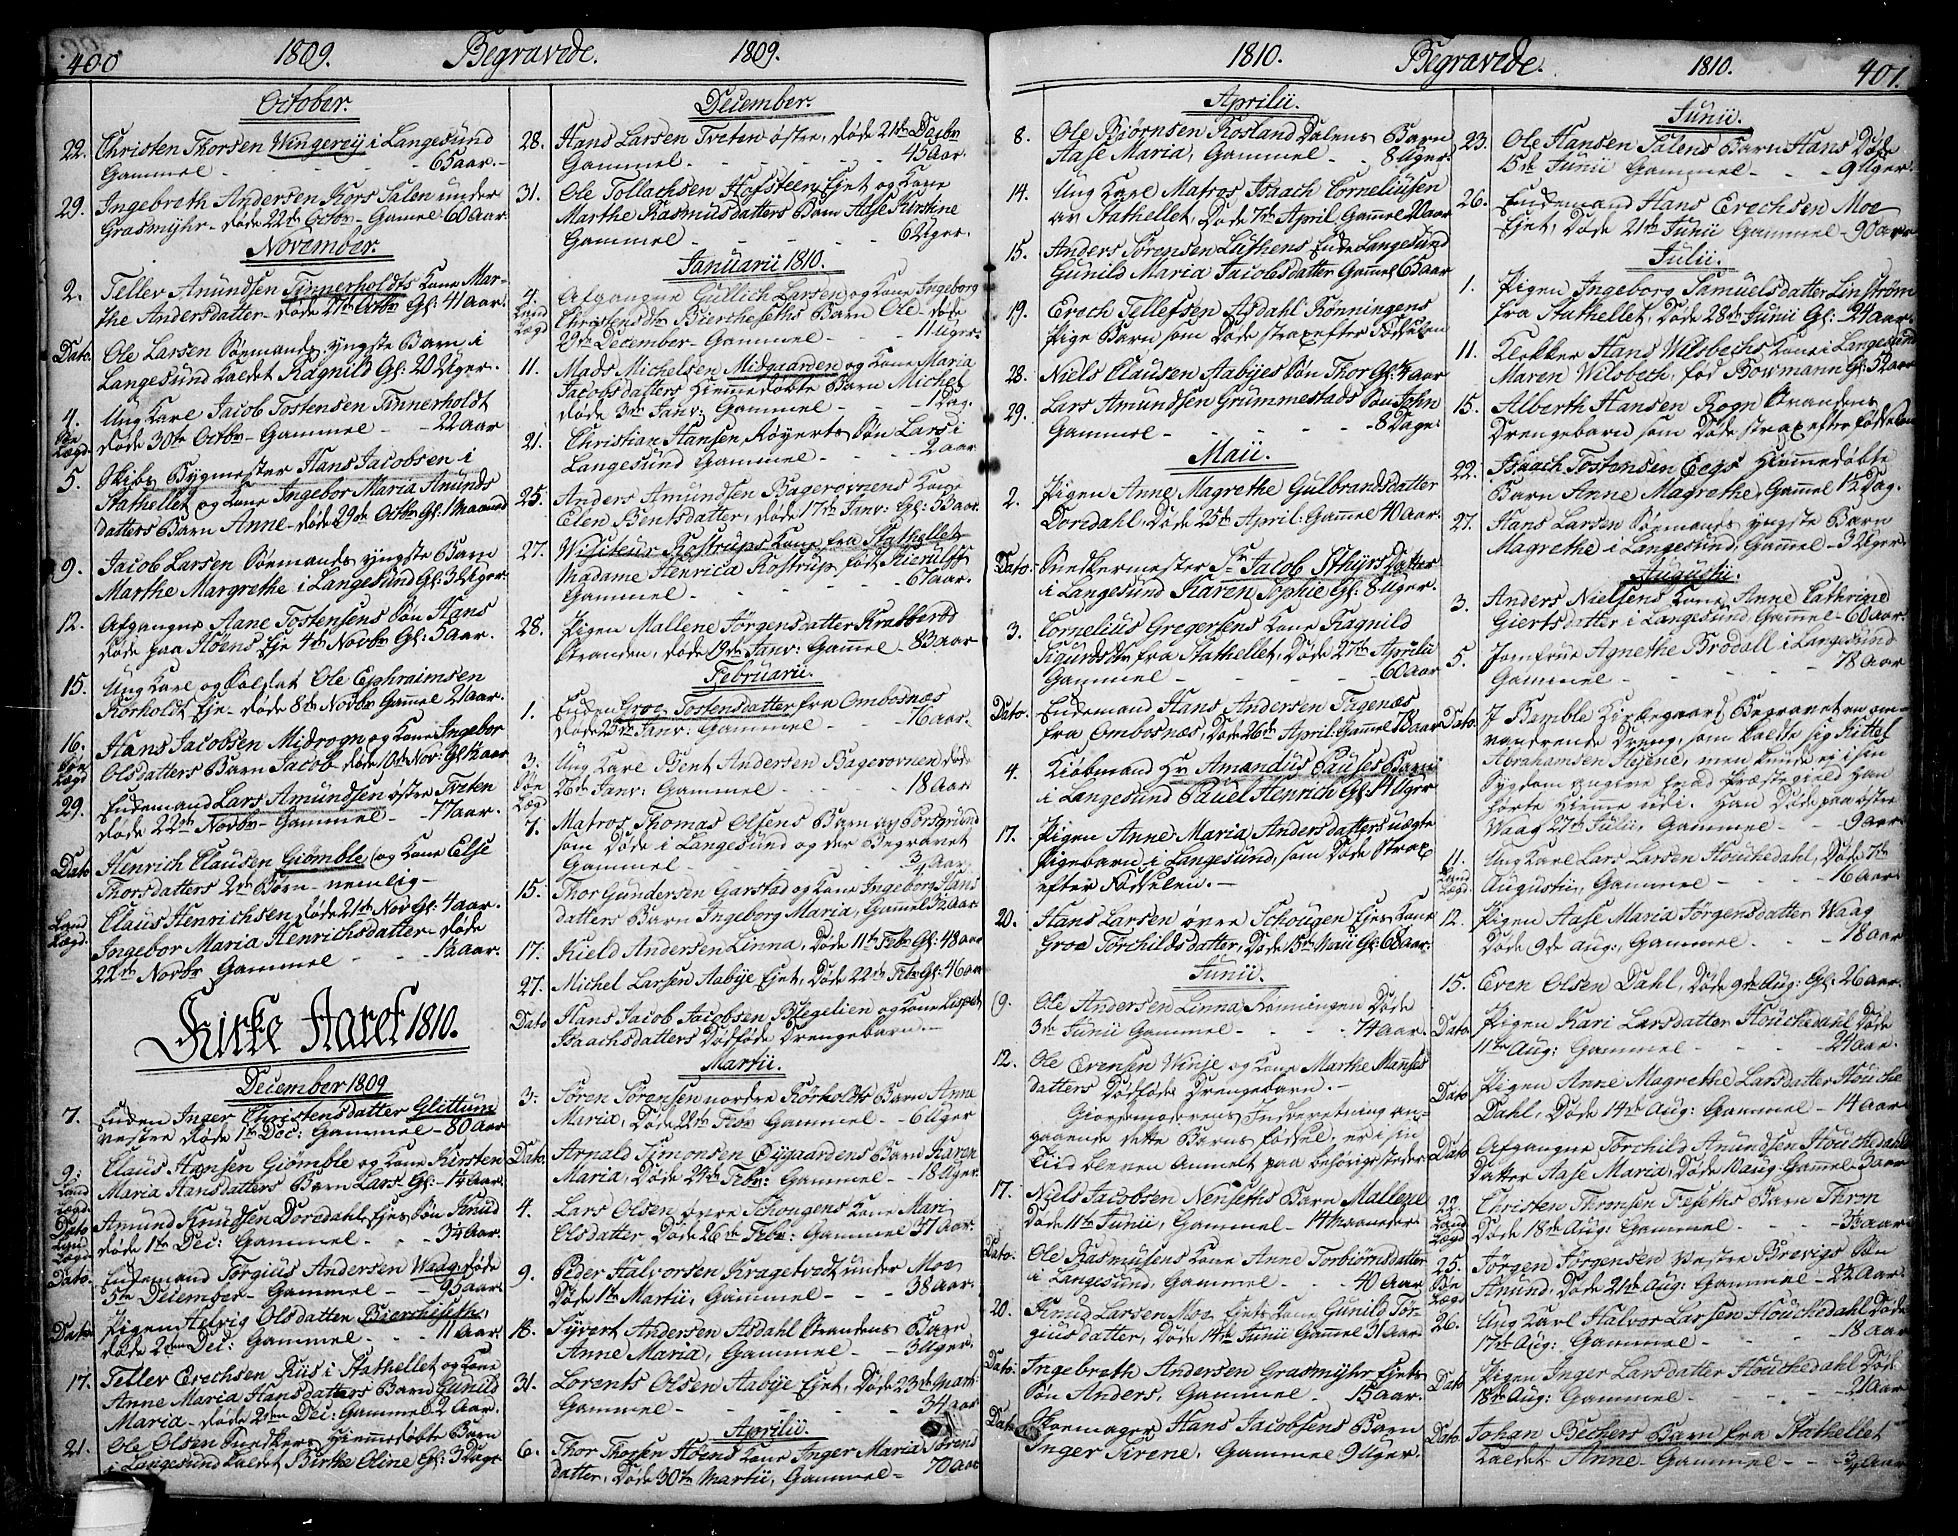 400 1809. Begravede. 1809.
October.
22. Christen Thorsen Wingereij i Langesund
Gammel - - - 65 aar.
29. Ingebreth Andersen Kors Salen under
Grasmyhr - døde 22de Octbr - Gamel 60 Aar
November.
2. Teller Amundsen Tinnerholdts Kone Mar-
the Andersdatter - døde 27th Octbr Gl: 41 Aar.
Dato. Ole Larsen Søemands yngste Barn i
Langesund kaldet Ragnild Gl: 20 Uger.
4. Ung Karl Jacob Tostensen Tinnerholdt
Søe Lægd døde 30te Octbr - Gammel - - 22 aar
5. Skibs Bygmester Hans Jacobsen i
Stathellet og Kone Ingebor Maria Amunds
datters Barn Anne - døde 29de Octbr Gl: 1 Maaned
9. Jacob Larsen Søemands yngste Barn
Marthe Margrethe i Langesund Gl: 3 Uger.
12. Afgangne Hane Tostensens Søn Hans
døde paa Høens Eje 4th Novbr Gl: 5 Aar.
15. Ung Karl og Soldat Ole Ephraimsen
Rørholdt Eje - døde 8de Novbr Gamel 21 aar.
16. Hans Jacobsen Midrogn og Kone Ingebor
Søe Lægd Olsdatters Barn Jacob døde 10de Nov: Gl: 1/2 aar
29. Enkemand Lars Amundsen østre Tveten
døde 22de Novbr - Gammel - 77 aar.
Dato Henrich Clausen Giømble (og Kone Else
Thorsdatters 2de Børn - nemlig -
Land Lægd. Claus Henrichsen døde 21de Nov Gl: 4 aar.
Ingebor Maria Henrichsdatter - døde
22de Novbr Gammel - - 1 1/2 aar.
Kirke Aaret 1810.
December 1809
7. Enken Inger Christensdatter Glittum
vestre døde 1te Dec: Gammel - 80 Aar
9: Claus Hansen Giømble og Kone Kirsten
Land Lægd. Maria Hansdatters Barn Lars Gl: 1/4 aar.
Dato Amund Knudsen Dordahl Ejes Søn Knud
Land Lægd døde 1te Dec: Gammel - - 3 1/4 aar.
Dato. Enkemand Jørgius Andersen Waag døde
5te December - Gammel - - 95 aar.
Dato. Pigen Helvig Olsdatter Bierchesethe
døde 2den Dec: Gammel - - 11 aar.
17. Teller Erechsen Riis i Stathellet og Kone
Anne Maria Hansdatters Barn Gunild
Maria - døde 2den Dec: Gammel 2 Aar.
21. Ole Olsen Snedkers Hiemmedøbte Barn
i Langesund kaldet Birthe Oline Gl: 3 Dage
December.
28. Hans Larsen Tveten østre, døde 21de Decbr
Gammel. - - - 45 Aar.
31. Ole Tollachsen Hafsteen Ejet og Kone
Marthe Rasmusdatters Barn Aase Kirstine
Gammel - - - 6 Uger.
Januarii 1810.
4. Afgangne Gullich Larsen og Kone Ingeborg
Land Lægd Christensdtr Biercheseths Barn Ole - døde
29de December - Gammel - - 11 Uger.
11. Mads Michelsen Midgaarden og Kone Maria
Jacobsdatters Hiemmedøbte Barn Michel
døde 3de Janv: Gammel - - 1 Dag.
21. Christian Hansen Røyerts Søn Lars i
Langesund Gammel - - - 2 aar
25. Anders Amundsen Bagerovnens Kone
Elen Bentsdatter, døde 17de Janv: Gl: 33 aar.
27. Wisiteur Rostrups Kone fra Stathellet
Madame Henrica Rostrup født Kierulff
Gammel - - - 67 aar.
28. Pigen Mallene Jørgensdatter Krabberød
Stranden, døde 9de Janv: Gammel - 83 aar
Februarii.
1. Enken Groe Tostensdatter fra Ombosnæs
døde 25de Janv: Gammel - - 76 aar.
3. Ung Karl Bent Andersen Bagerovnen døde
Søe Lægd 26de Janv: Gammel - - 18 Aar
7. Matros Thomas Olsens Barn af Porsgrund
som Døde i Langesund og der Begravet
Gammel - - - 3/4 Aar.
15. Thor Gundersen Garstad og Kone Ingeborg Hans
datters Barn Ingeborg Maria, Gammel 3 1/2 Aar
17. Kield Andersen Linna, Døde 11te Febr Gl: 48 aar
27. Michel Larsen Aabye Ejet, Døde 22de Febr Gl: 46 aar
Dato Hans Jacob Jacobsen Blegelien og Kone Lispet
Isaachsdatters Dødføde Drengebarn. -
Martii.
3. Søren Sørensen nordre Rørholdts Barn Anna
Maria, Døde 22de Febr Gammel - 6 Uger
Dato. Arnald Simonsen Øygaardens Barn Karen
Maria, Døde 24de Febr: Gammel - 18 Uger.
4. Lars Olsen øvre Schougens Kone Mari
Olsdatter, Døde 26de Febr: Gammel 37 aar.
9. Peder Halvorsen Kragetvedt under Moe
Døde 1te Martii, Gammel - - 38 aar.
18. Syvert Andersen Asdahl Strandens Barn
Anne Maria, Gammel - - 3 Uger.
31. Lorents Olsen Aabye Ejet, Døde 23de Marti
Gammel - - - 34 aar
Aprilii.
6. Thor Thorsen Høens Kone Inger Maria Sørens
datter, Døde 30te Martii, Gammel - 70 Aar
1810. Begravede. 1810. 401.
Aprilii.
8. Ole Biørnsen Rosland Dalens Barn
Aase Maria, Gammel - - 8 Uger.
14. Ung Karl Matros Isaach Corneliusen
av Stathellet, Døde 7de April Gammel 20 aar
15. Anders Sørensen Luthens Enke Langesund
Gunild Maria Jacobsdatter Gammel 65 aar
19. Erech Tellefsen Asdahl Rønningens
Pige Barn som Døde strax efter Fødselen
28. Niels Clausen Aabyes Søn Thor Gl: 4 aar
29. Lars Amundsen Grummestads Søn John
Gammel - - - 8 Dage.
Maii.
2. Pigen Anne Magrethe Gulbrandsdatter
Dordahl, Døde 25de April: Gammel 40 Aar.
Dato. Snedkermester Sr Jacob Sthyrs Datter
i Langesund Karen Sophie Gl: 8 Uger.
3. Cornelius Gregersens Kone Ragnild
Sigurdsdtr fra Stathellet, Døde 27de Aprilii
Gammel - - - 60 aar
Dato. Enkemand Hans Andersen Fagenæs
fra Ombosnæs, Døde 26de April: Gammel 78 aar
4. Kiøbmand Hr Amandus Pauses Barn
i Langesund Pauel Henrich Gl: 14 Uger
17. Pigen Anne Maria Andersdatters uægte
Pigebarn i Langesund, som Døde Strax
efter Fødselen. -
20. Hans Larsen øvre Schougen Ejes Kone
Groe Torchildsdatter, Døde 15de Maii Gl: 68 aar.
Junii.
9. Ole Andersen Linna Rønningen Døde
3de Junii Gammel - - 74 Aar.
12. Ole Evensen Winje og Kone Marthe Manses
datters Dødføde Drengebarn. -
Giordemoderens Indberetning an-
gaaende dette Barns Fødsel, er i sin
Tiid bleven Anmelt paa behørige steder
17. Niels Jacobsen Nenseths Barn Mallene
Døde 11te Junii, Gammel - 14 maaneder
Dato. Ole Rasmusens Kone Anne Torbiørnsdatter
i Langesund, Gammel - - 40 aar
20. Knud Larsen Moe Ejets Kone Gunild Tor-
giusdatter, Døde 14de Junii Gammel 31 aar
Dato. Ingebreth Andersen Grasmyhr Ejets
Søn Anders, Gammel - 15 aar.
Dato Skoemager Hans Jacobsens Barn
Inger Sirene, Gammel 9 Uger.
Junii.
23. Ole Hansen Salens Barn Hans Døde
15de Junii Gammel - - 9 Uger.
26. Enkemand Hans Erechsen Moe
Ejet, Døde 21de Junii Gammel - 90 aar
Julii.
1. Pigen Ingeborg Samuelsdatter Linstrøm
fra Stathellet, Døde 28de Junii Gl: 24 aar.
11. Klokker Hans Wilsbechs Kone i Langesund
Maren Wilsbech, fød Bowmann Gl: 32 aar
15. Alberth Hansen Rogn Strandens
Drengebarn som Døde strax efter Fødselen
22. Isaach Tostensen Eegs Hiemmedøbte
Barn Anne Magrethe, Gammel 1 1/2 Dag.
27. Hans Larsen Søemands yngste Barn
Magrethe i Langesund, Gammel - 3 Uger.
Augustii.
3. Anders Nielsens Kone Anne Cathrine
Giertsdatter i Langesund, Gammel - 60 aar.
5. Jomfrue Agnethe Brodall i Langesund
Gammel - - - 78 aar
Dato. I Bamble Kirkegaard Begravet en om-
vandrende Dreng, som kaldte sig Kittel
Abrahamsen Hejene, men kunde ej i sin
Sygdom angive hvad Præstegield Han
hørte Hiemme udi. Han Døde paa østre
Waag 27de Julii, Gammel - - 9 aar
11. Ung Karl Lars Larsen Houchedahl, Døde 7de
Land Lægd. Augustii, Gammel - - - 16 aar.
12. Pigen Aase Maria Jørgensdatter Waag
Døde 9de Aug:, Gammel - - - 18 aar
15. Even Olsen Dahl, Døde 9de Aug: Gl: 26 aar.
Dato. Pigen Kari Larsdatter Houchedahl Døde
11te Aug: Gammel - - - 24 aar.
Dato Pigen Anne Magrethe Larsdatter Houche
Dahl, Døde 14de Aug: Gammel - 14 aar
Dato Afgangne Torchild Amundsen Houchedahls
Datter Aase Maria, Døde 10 Aug: Gammel 3 aar
22. Christen Thronsen Feseths Barn Thron
Land Lægd Døde 18de Aug: Gammel - - - 3 1/2 aar
25. Jørgen Jørgensen Vestre Brevigs Søn
Søe Lægd. Amund, Døde 21de Aug: Gammel - 2 1/2 Aar.
26. Ung Karl Halvor Larsen Houchedahl Døde
17de Aug: Gammel - - - 18 aar
Dato Pigen Inger Larsdatter Houchedahl Døde
18de Aug: Gammel - - - 21 aar
Dato. Johan Bechers Barn fra Stathellet
Kaldet Anne - Gammel - - 3/4 Aar